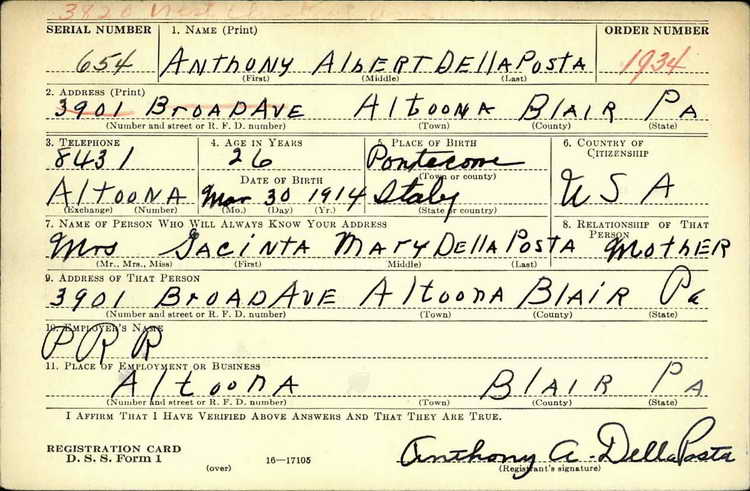 SERIAL NUMBER 1. NAME (Print) ORDER NUMBER
654 ANTHONY ALBERT DELLAPOSTA 1934
(First) (Middle) (Last)
2. ADDRESS (Print)
3901 BROAD AVE ALTOONA BLAIR PA
(Number and street or R. F. D. number) (Town) (County) (State)
3. TELEPHONE 4. AGE IN YEARS 5. PLACE OF BIRTH 6. COUNTRY OF
CITIZENSHIP
8431 26 Pontecorvo
(Town or county)
DATE OF BIRTH
ALTOONA Mar 30 1914 Italy USA
(Exchange) (Number) (Mo.) (Day) (Yr.) (State or country)
7. NAME OF PERSON WHO WILL ALWAYS KNOW YOUR ADDRESS 8. RELATIONSHIP OF THAT
PERSON
MRS GACINTA MARY DELLA POSTA MOTHER
(Mr., Mrs., Miss) (First) (Middle) (Last)
9. ADDRESS OF THAT PERSON
3901 BROAD AVE ALTOONA BLAIR Pa
(Number and street or R. F. D. number) (Town) (County) (State)
10. EMPLOYER'S NAME
PRR
11. PLACE OF EMPLOYMENT OR BUSINESS
ALTOONA BLAIR PA
(Number and street or R. F. D. number) (Town) (County) (State)
I AFFIRM THAT I HAVE VERIFIED ABOVE ANSWERS AND THAT THEY ARE TRUE.
REGISTRATION CARD
D. S. S. Form 1 (over) 16—17105 Anthony A. DellaPosta
(Registrant's signature)